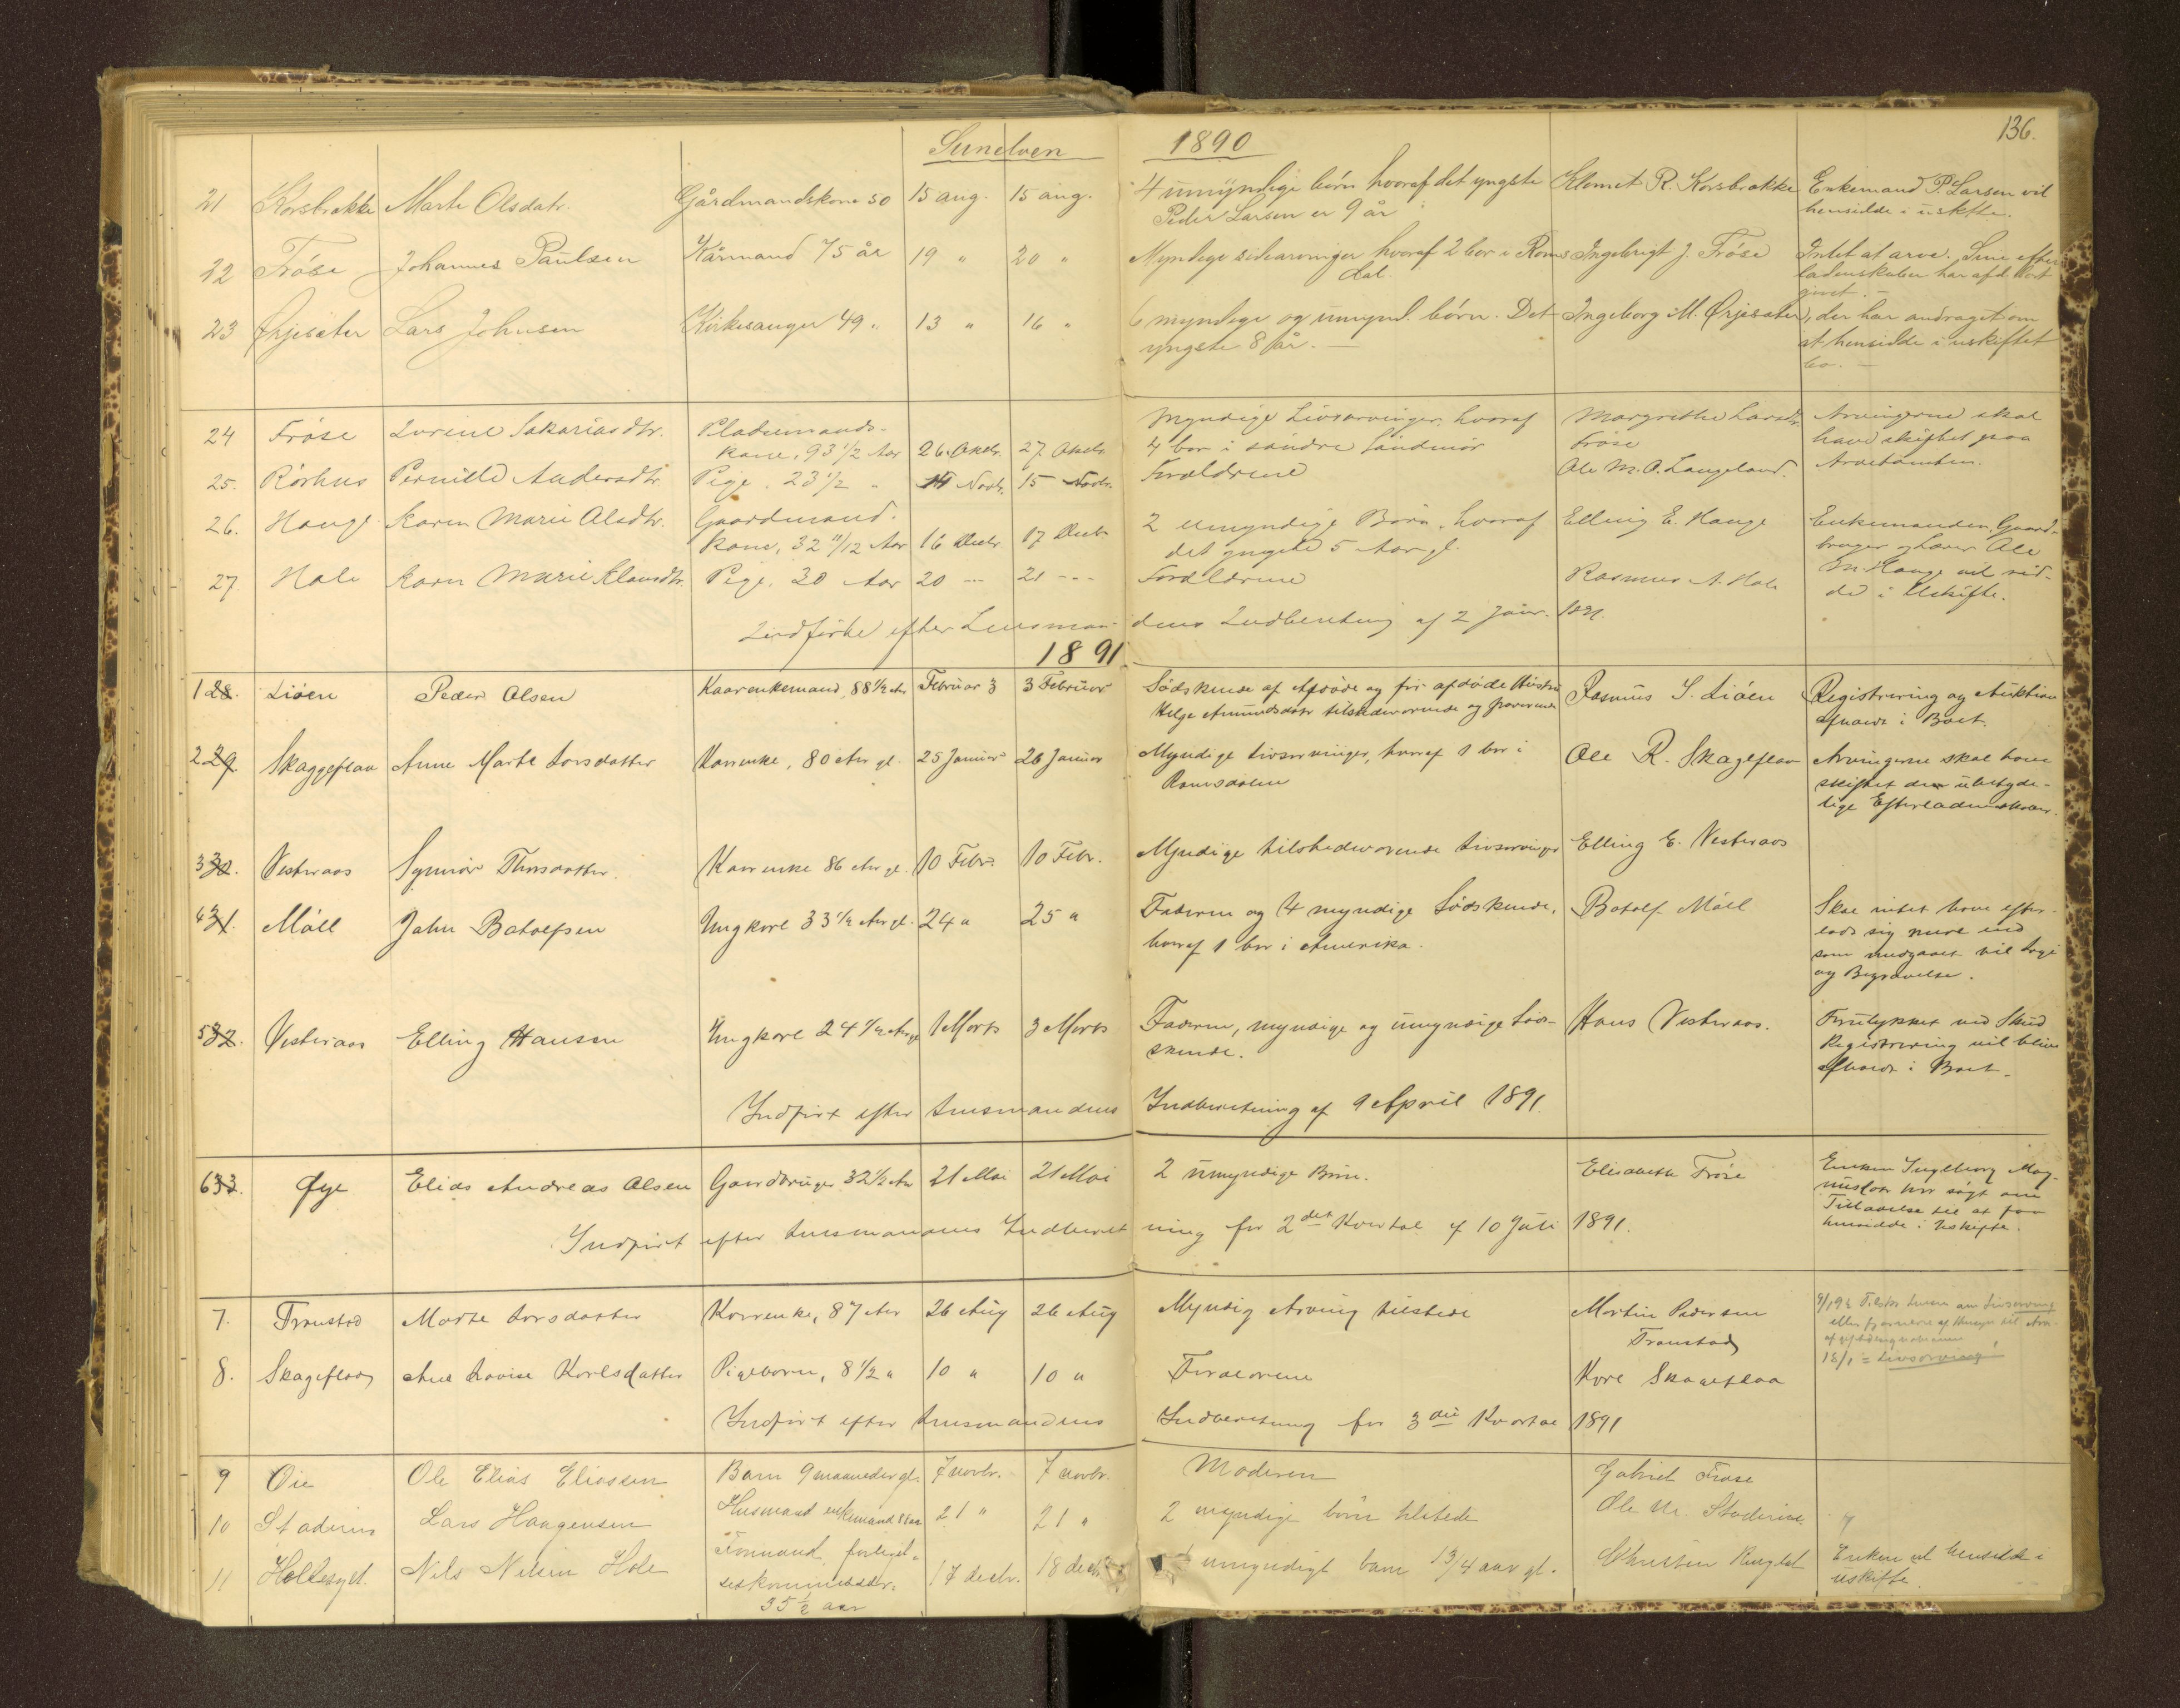 Sunelven 1890 136.
21 Korsbrække Marte Olsdatr. Gårdmandskone 50 15 aug. 15 aug. 4 umyndige børn hvoraf det yngste Klomet R. Korsbrække Enkemand P. Larsen vil
Peder Larsen er 9 år hensidde i uskifte.
22 Frøse Johannes Paulsen Kårmand 75 år 19 " 20 " Myndige sidearvinger hvoraf 2 bor i Roms Ingebrigt J. Frøse Intet at arve. Sine efter
dal. ladenskaber har afd. bort
givet. —
23 Ørjesæter Lars Johnsen Kirkesanger 49 " 13 " 16 " 6 myndige og umynd. børn. Det Ingeborg M. Ørjesæter, der har andraget om
yngste 8 år. — at hensidde i uskiftet
bo. —
24 Frøse Lorine Sakariasdtr. Pladsemands- Myndige Livsarvinger, hvoraf Margrethe Larsdtr. Arvingerne skal
kone, 93 1/2 Aar 26. Oktbr. 27 Oktbr. 4 bor i søndre Søndmør Frøse have skiftet paa
25. Rørhus Pernille Andersdtr. Pige, 23 1/2 " 14 Novbr. 15 Novbr. Forældrene Ole M. O. Langeland. Arvetomten.
26. Hauge Karen Marie Olsdtr. Gaardmand- 2 umyndige Børn, hvoraf Elling E. Hauge Enkemanden, Gaard-
kone, 32 11/12 Aar 16 Decbr 17 Decbr det yngste 5 Aar gl. bruger og Lærer Ole
27. Hole Karen Marie Klausdtr. Pige, 30 Aar 20 --- 21 --- Forældrene Rasmus A. Hole M. Hauge vil sid-
de i Uskifte.
Indførte efter Lensmandens Indberetning af 2 Janr. 1891.
1891
128. Liøen Peder Olsen Kaarenkemand, 88 1/2 Aar Februar 3 3 Februar Sødskende af Afdøde og før afdøde Hustru Rasmus S. Liøen Registrering og Auktion
Helge Amundsdatr tilstedeværende og fraværende afholdt i Boet.
229. Skaggeflaa Anne Marte Larsdatter Kaarenke, 80 Aar gl. 25 Januar 26 Januar Myndige Livsarvinger, hvoraf 1 bor i Ole R. Skageflaa Arvingerne skal have
Romsdalen skiftet den ubetyde-
lige Efterladenskaber.
330. Vesteraas Synnøve Thorsdatter. Kaarenke 86 Aar gl. 10 Febr. 10 Febr. Myndige tilstedeværende Livsarvinger Elling E. Vesteraas
431. Møll John Botolfsen Ungkarl 33 1/2 Aar gl. 24 " 25 " Faderen og 4 myndige Sødskende, Botolf Møll Skal intet have efter-
hvoraf 1 bor i Amerika. ladt sig mere end
som medgaaet vil Læge
og Begravelse.
532. Vesteraas Elling Hansen Ungkarl 24 1/2 Aar gl 1 Marts 3 Marts Faderen, myndige og umyndige Sød- Hans Vesteraas. Forulykket ved Skud
skende. Registrering vil blive
afholdt i Boet.
Indført efter Lensmandens Indberetning af 9 April 1891.
633. Øye Elias Andreas Olsen Gaardbruger 32 1/2 Aar 21 Mai 21 Mai 2 umyndige Børn. Elisabeth Frøse Enken Ingeborg Mag-
nusdatr har søgt om
Tilladelse til at faa
hensidde i Uskifte.
Indført efter Lensmandens Indberetning for 2det Kvartal af 10 Juli 1891.
7. Tronstad Marte Larsdatter Kaarenke, 87 Aar 26 Aug 26 Aug Myndig Arving tilstede Martin Pedersen
Tronstad
18/1 = Livsarving!
8. Skageflaa Ane Lovise Karlsdatter Pigebarn, 8 1/2 " 10 " 10 " Forældrene Karl Skageflaa
Indført efter Lensmandens Indberetning for 3die Kvartal 1891
9 Øie Ole Elias Eliassen Barn 9 maaneder gl. 7 novbr. 7 novbr. Moderen Gabriel Frøse
10 Staderim Lars Haagensen Husmand enkemand 21 " 21 " 2 myndige børn tilstede Ole M. Staderim
11 Hellesylt. Nils Nilsen Hole Formand, forligel- 17 decbr. 18 decbr. 1 umyndigt barn 1 3/4 aar gl. Christen Ringstad Enken vil hensidde i
seskommissær. uskifte.
35 1/2 aar